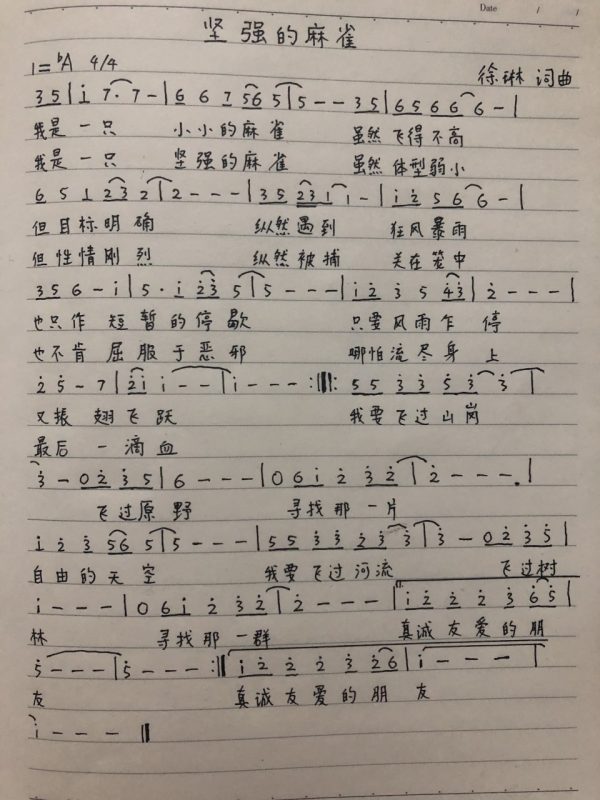 Date / /
坚强的麻雀
1=ᵇA 4/4
徐琳 词曲
3 5 | i 7· 7 - | 6 6 7 56 5 | 5 - - 3 5 | 6 5 6 6 6 - |
我是一只 小小的麻雀 虽然飞得不高
我是一只 坚强的麻雀 虽然体型弱小
6 5 1 23 2 | 2 - - - | 3 5 23 1 1 - | i 2 5 6 6 - |
但目标明确 纵然遇到 狂风暴雨
但性情刚烈 纵然被捕 关在笼中
3 5 6 - i | 5 · i 23 5 | 5 - - - | i 2 3 5 43 | 2 - - - |
也只作短暂的停歇 只要风雨乍停
也不肯屈服于恶邪 哪怕流尽身上
2 5 - 7 | 2i i - - | i - - - :||: 5 5 3 3 5 3 3 |
又振翅飞跃 我要飞过山岗
最后一滴血
3 - 0 2 3 5 | 6 - - - | 0 6 i 2 3 2 | 2 - - - |
飞过原野 寻找那一片
i 2 3 56 5 | 5 - - - | 5 5 3 3 2 3 3 | 3 - 0 2 3 5 |
自由的天空 我要飞过河流 飞过树
i - - - | 0 6 i 2 3 2 | 2 - - - | i 2 2 2 3 6 5 |
林 寻找那一群 真诚友爱的朋
5 - - - | 5 - - - :|| i 2 2 2 3 2 6 | i - - - |
友 真诚友爱的朋友
i - - - ||